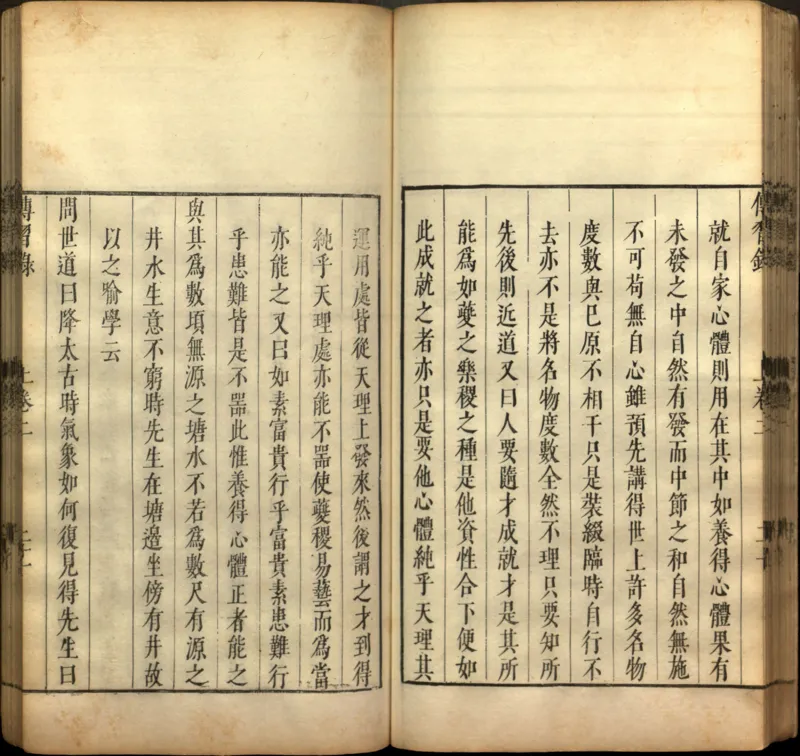 傳習錄
上卷二
就自家心體則用在其中如養得心體果有
未發之中自然有發而中節之和自然無施
不可苟無自心雖預先講得世上許多名物
度數與已原不相干只是裝綴臨時自行不
去亦不是將名物度數全然不理只要知所
先後則近道又曰人要隨才成就才是其所
能為如夔之樂稷之種是他資性合下便如
此成就之者亦只是要他心體純乎天理其
運用處皆從天理上發來然後謂之才到得
純乎天理處亦能不噐使夔稷易藝而為當
亦能之又曰如素富貴行乎富貴素患難行
乎患難皆是不噐此惟養得心體正者能之
與其為數頃無源之塘水不若為數尺有源之
井水生意不窮時先生在塘邉坐傍有井故
以之喻學云
問世道日降太古時氣象如何復見得先生曰
傳習錄
上卷二